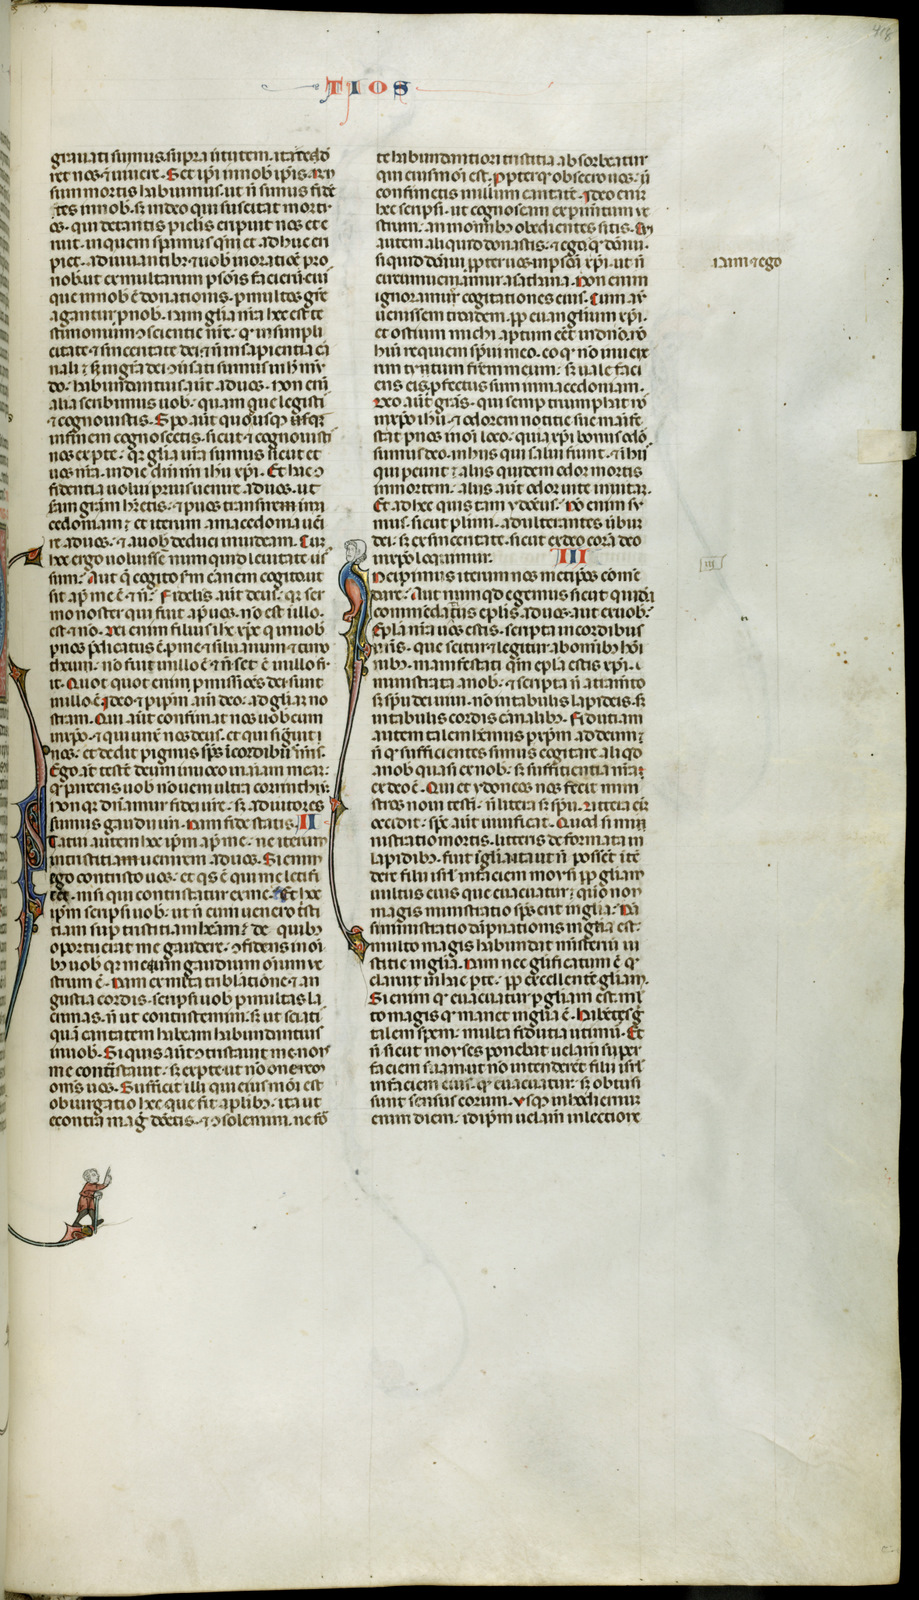 TIOS
418
grauati sumus supra uirtutem. ita ut tedē
ret nos & uiuere. Set ip̄i in nob̄ ip̄is. rn̄
sum mortis habuimus. ut n̄ simus fidē
tes in nob̄. s; in deo qui suscitat mortu
os. qui de tantis p̱iclis eripuit nos et e
ruit. in quem sp̄amus qm̄ et adhuc eri
piet. adiuuantib; & uob̄ in oratiōe pro
nob̄. ut ex multarum p̱sonis facierū eius
que in nob̄ ē donationis. p̱ multos grē
agantur p̱ nob̄. Nam gl̄ia nr̄a hec est te
stimonium ↄscientie nr̄e. qr̄ in simpli
citate & sinceritate dei. & n̄ in sapientia car
nali. s; in gr̄a dei ↄuersati sumus in h̄ mū
do. habundantius aūt ad uos. Non eni
alia scribimus uob̄. quam que legisti
& cognouistis. Spo aūt quod usqꝫ
in finem cognoscetis. sicut & cognouisti
nos ex parte. qr̄ gl̄ia ur̄a sumus sicut et
uos nr̄a. in die dn̄i nr̄i ih̄u xp̄i. Et hac ↄ
fidentia uolui prius uenire ad uos. ut
scd̄am grām hr̄etis. & p̱ uos transirem in ma
cedoniam. et iterum a macedonia ueni
re ad uos. & a uob̄ deduci in iudeam. Cum
hoc ergo uoluissē. numquid leuitate us̄
sum. Aut q̄ cogito s̄m carnem cogito. ut
sit ap̄ me ē & n̄. Fidelis aūt deus. qr̄ ser
mo noster qui fuit ap̄ uos. nō est in illo.
est & nō. Dei enim filius ih̄c xp̄c q̄ in uob̄
p̱ nos p̄dicatus ē. p̱ me & siluanum & timo
theum. nō fuit in illo ē & n̄. set ē in illo fu
it. Quot quot enim p̱missiōes dei sunt
in illo ē. Ideo & p̱ ip̄m am̄ deo. ad gl̄iam no
stram. Qui aūt confirmat nos uob̄cum
in xp̄o. & qui unxit nos deus. et qui signauit
nos. et dedit pignus sp̄s ī cordib; nr̄is.
Ego aū testē deum inuoco in animā meā.
q̄ p̱cens uob̄ nō ueni ultra corinthū.
Non qr̄ dn̄amur fidei ur̄e. s; adiutores
sumus gaudii ur̄i. Nam fide statis. II
Statui autem hoc ip̄m ap̄ me. ne iterum
in tristitiam uenirem ad uos. Si enim
ego contristo uos. et q̄s ē qui me letifi
cet. nisi qui contristatur ex me. Et hoc
ip̄m scripsi uob̄. ut n̄ cum uenero tristi
tiam sup̱ tristitiam habeam. de quib;
oportuerat me gaudere. ↄfidens in om̄i
b; uob̄ qr̄ meum gaudium omnium ue
strum ē. Nam ex multa tribulatione & an
gustia cordis. scripsi uob̄ p̱ multas la
crimas. n̄ ut contristemini. s; ut sciatis
quā caritatem habeam habundantius
in uob̄. Si quis aūt ↄtristauit me. non
me contristauit. s; ex p̱te. ut nō onerem
om̄s uos. Sufficit illi qui eius mōi est
obiurgatio hec que fit a plib;. ita ut
econtra mag̓ donetis. & ↄsolemini. ne forte
te habundantiori tristitia absorbeatur
qui eius mōi est. Propter qr̄ obsecro uos. ut
confirmetis in illum caritatē. Ideo enim
hoc scripsi. ut cognoscam exp̱imentum ue
strum. an in omnib; obedientes sitis. Cui
autem aliquid donastis. & ego. q̄ donaui.
si quid donaui. p̱pter uos in p̱sona xp̄i. ut n̄
circumueniamur a sathana. Non enim
ignoramus cogitationes eius. Cum aūt
uenissem troadem. p̱p euangelium xp̄i.
et ostium michi aptum eēt in dno. nō
hui requiem sp̄ui meo. eo q̄ nō inueni
rim tytum frēm meum. s; uale faci
ens eis. p̱fectus sum in macedoniam.
Deo aūt grās. qui semp̱ triumphat nō
in xp̄o ih̄u. & odorem notitie sue manife
stat p̱ nos in om̄i loco. quia xp̄i bonus odor
sumus deo. in hiis qui salui fiunt. & in hii
qui peunt. aliis quidem odor mortis
in mortem. aliis aūt odor uite in uitam.
Et ad hec quis tam ydoneus. Nō enim su
mus. sicut plimi. adulterantes ūbum
dei. s; ex sinceritate. sicut ex deo corā deo
in xp̄o loquimur. III
Incipimus iterum nos metip̄os comē
dare. Aut numqd̄ egemus sicut quidā
commēdaticiis ep̄lis. ad uos. aut ex uob̄.
Ep̄la nr̄a uos estis. scripta in cordibus
nr̄is. que scitur & legitur ab omib; ho
mib;. manifestati qm̄ ep̄la estis xp̄i.
ministrata a nob̄. & scripta n̄ atramto
s; sp̄u dei uiui. nō in tabulis lapideis. s;
in tabulis cordis carnalib;. Fidutiam
autem talem hēmus p̱ xp̄m ad deum.
n̄ q̄ sufficientes simus cogitare aliqd̄
a nob̄ quasi ex nob̄. s; sufficientia nr̄a
ex deo ē. Qui et ydoneos nos fecit mini
stros noui testi. n̄ litera s; sp̄u. Littera eni
occidit. sp̄c aūt uiuificat. Quod si mini
stratio mortis. litteris deformata in
lapidib;. fuit ī gl̄ia. ita ut n̄ possent ītē
dere filii isrl̄ in faciem moysi p̱p gl̄iam
uultus eius que euacuatur. quō non
magis ministratio sp̄s erit in gl̄ia. Nā
si ministratio dāpnationis in gl̄ia est.
multo magis habundat misteriū iu
stitie in gl̄ia. Nam nec glificatum ē q̄
claruit in hac p̱te. p̱p excellentē gl̄iam.
Si enim q̄ euacuatur p̱ gl̄iam est. ml̄
to magis q̄ manet in gl̄ia ē. Habētes g̓
talem spem. multa fidutia utimur. Et
n̄ sicut moyses ponebat uelam̄ super
faciem suam. ut nō intenderēt filii isrl̄
in faciem eius. q̄ euacuatur. s; obtusi
sunt sensus eorum. Vsq; in hodiernum
enim diem. id ip̄m uelam̄ in lectione
nam & ego
iii